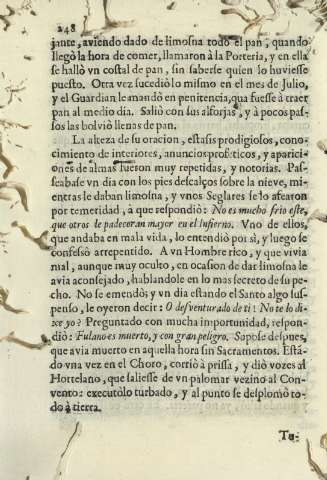 248
jante, aviendo dado de limosna todo el pan, quando
llegò la hora de comer, llamaron à la Porteria, y en ella
se hallò vn costal de pan, sin saberse quien lo huviesse
puesto. Otra vez sucediò lo mismo en el mes de Julio,
y el Guardian le mandò en penitencia, que fuesse à traer
pan al medio dia. Saliò con sus alforjas, y à pocos pas-
sos las bolviò llenas de pan.
La alteza de su oracion, estasis prodigiosos, cono-
cimiento de interiores, anuncios profeticos, y aparici-
ones de almas fueron muy repetidas, y notorias. Pas-
seabase vn dia con los pies descalços sobre la nieve, mi-
entras le daban limosna, y vnos Seglares se lo afearon
por temeridad, à que respondiò: No es mucho frio este,
que otros le padeceràn mayor en el Infierno. Vno de ellos,
que andaba en mala vida, lo entendiò por sì, y luego se
confessò arrepentido. A vn Hombre rico, y que vivia
mal, aunque muy oculto, en ocasion de dar limosna le
avia aconsejado, hablandole en lo mas secreto de su pe-
cho. No se emendò; y vn dia estando el Santo algo sus-
penso, le oyeron decir: O desventurado de ti! No te lo di-
xe yo? Preguntado con mucha importunidad, respon-
diò: Fulano es muerto, y con gran peligro. Supose despues,
que avia muerto en aquella hora sin Sacramentos. Està-
do vna vez en el Choro, corriò à prissa, y diò vozes al
Hortelano, que saliesse de vn palomar vezino al Con-
vento: executòlo turbado, y al punto se desplomò to-
do à tierra.
Tu-